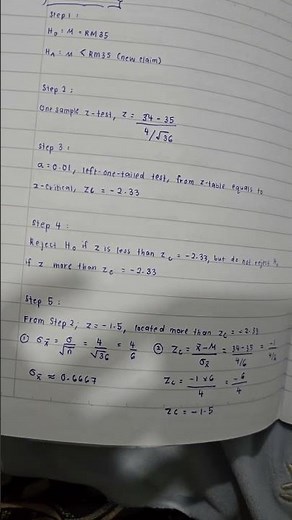 Step 1 :
H₀ : M = RM35
Hₐ : M < RM35 (new claim)
Step 2 :
One sample z-test, z = 34 - 35 / 4/√36
Step 3 :
a = 0.01, left-one-tailed test, from z-table equals to
z-critical, zc = -2.33
Step 4 :
Reject H₀ if z is less than zc = -2.33, but do not reject H₀
if z more than zc = -2.33
Step 5 :
From Step 2, z = -1.5, located more than zc = -2.33
① σx̄ = σ/√n = 4/√36 = 4/6
② Zc = x̄-M/σx̄ = 34-35/4/6 = -1/4/6
σx̄ ≈ 0.6667
Zc = -1×6/4 = -6/4
Zc = -1.5